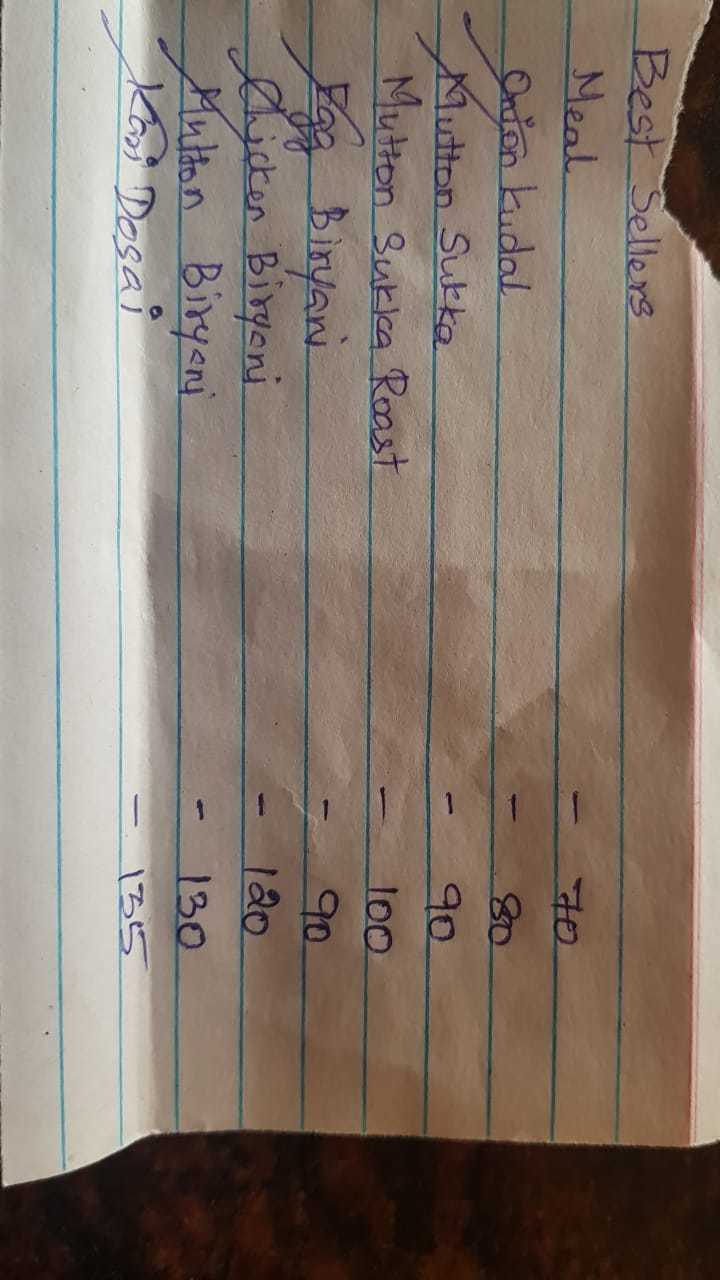 Best Sellers
Meal - 70
Onion kudal - 80
Mutton Sukka - 90
Mutton Sukka Roast - 100
Egg Biryani - 90
Chicken Biryani - 120
Mutton Biryani - 130
Kari Dosai - 135